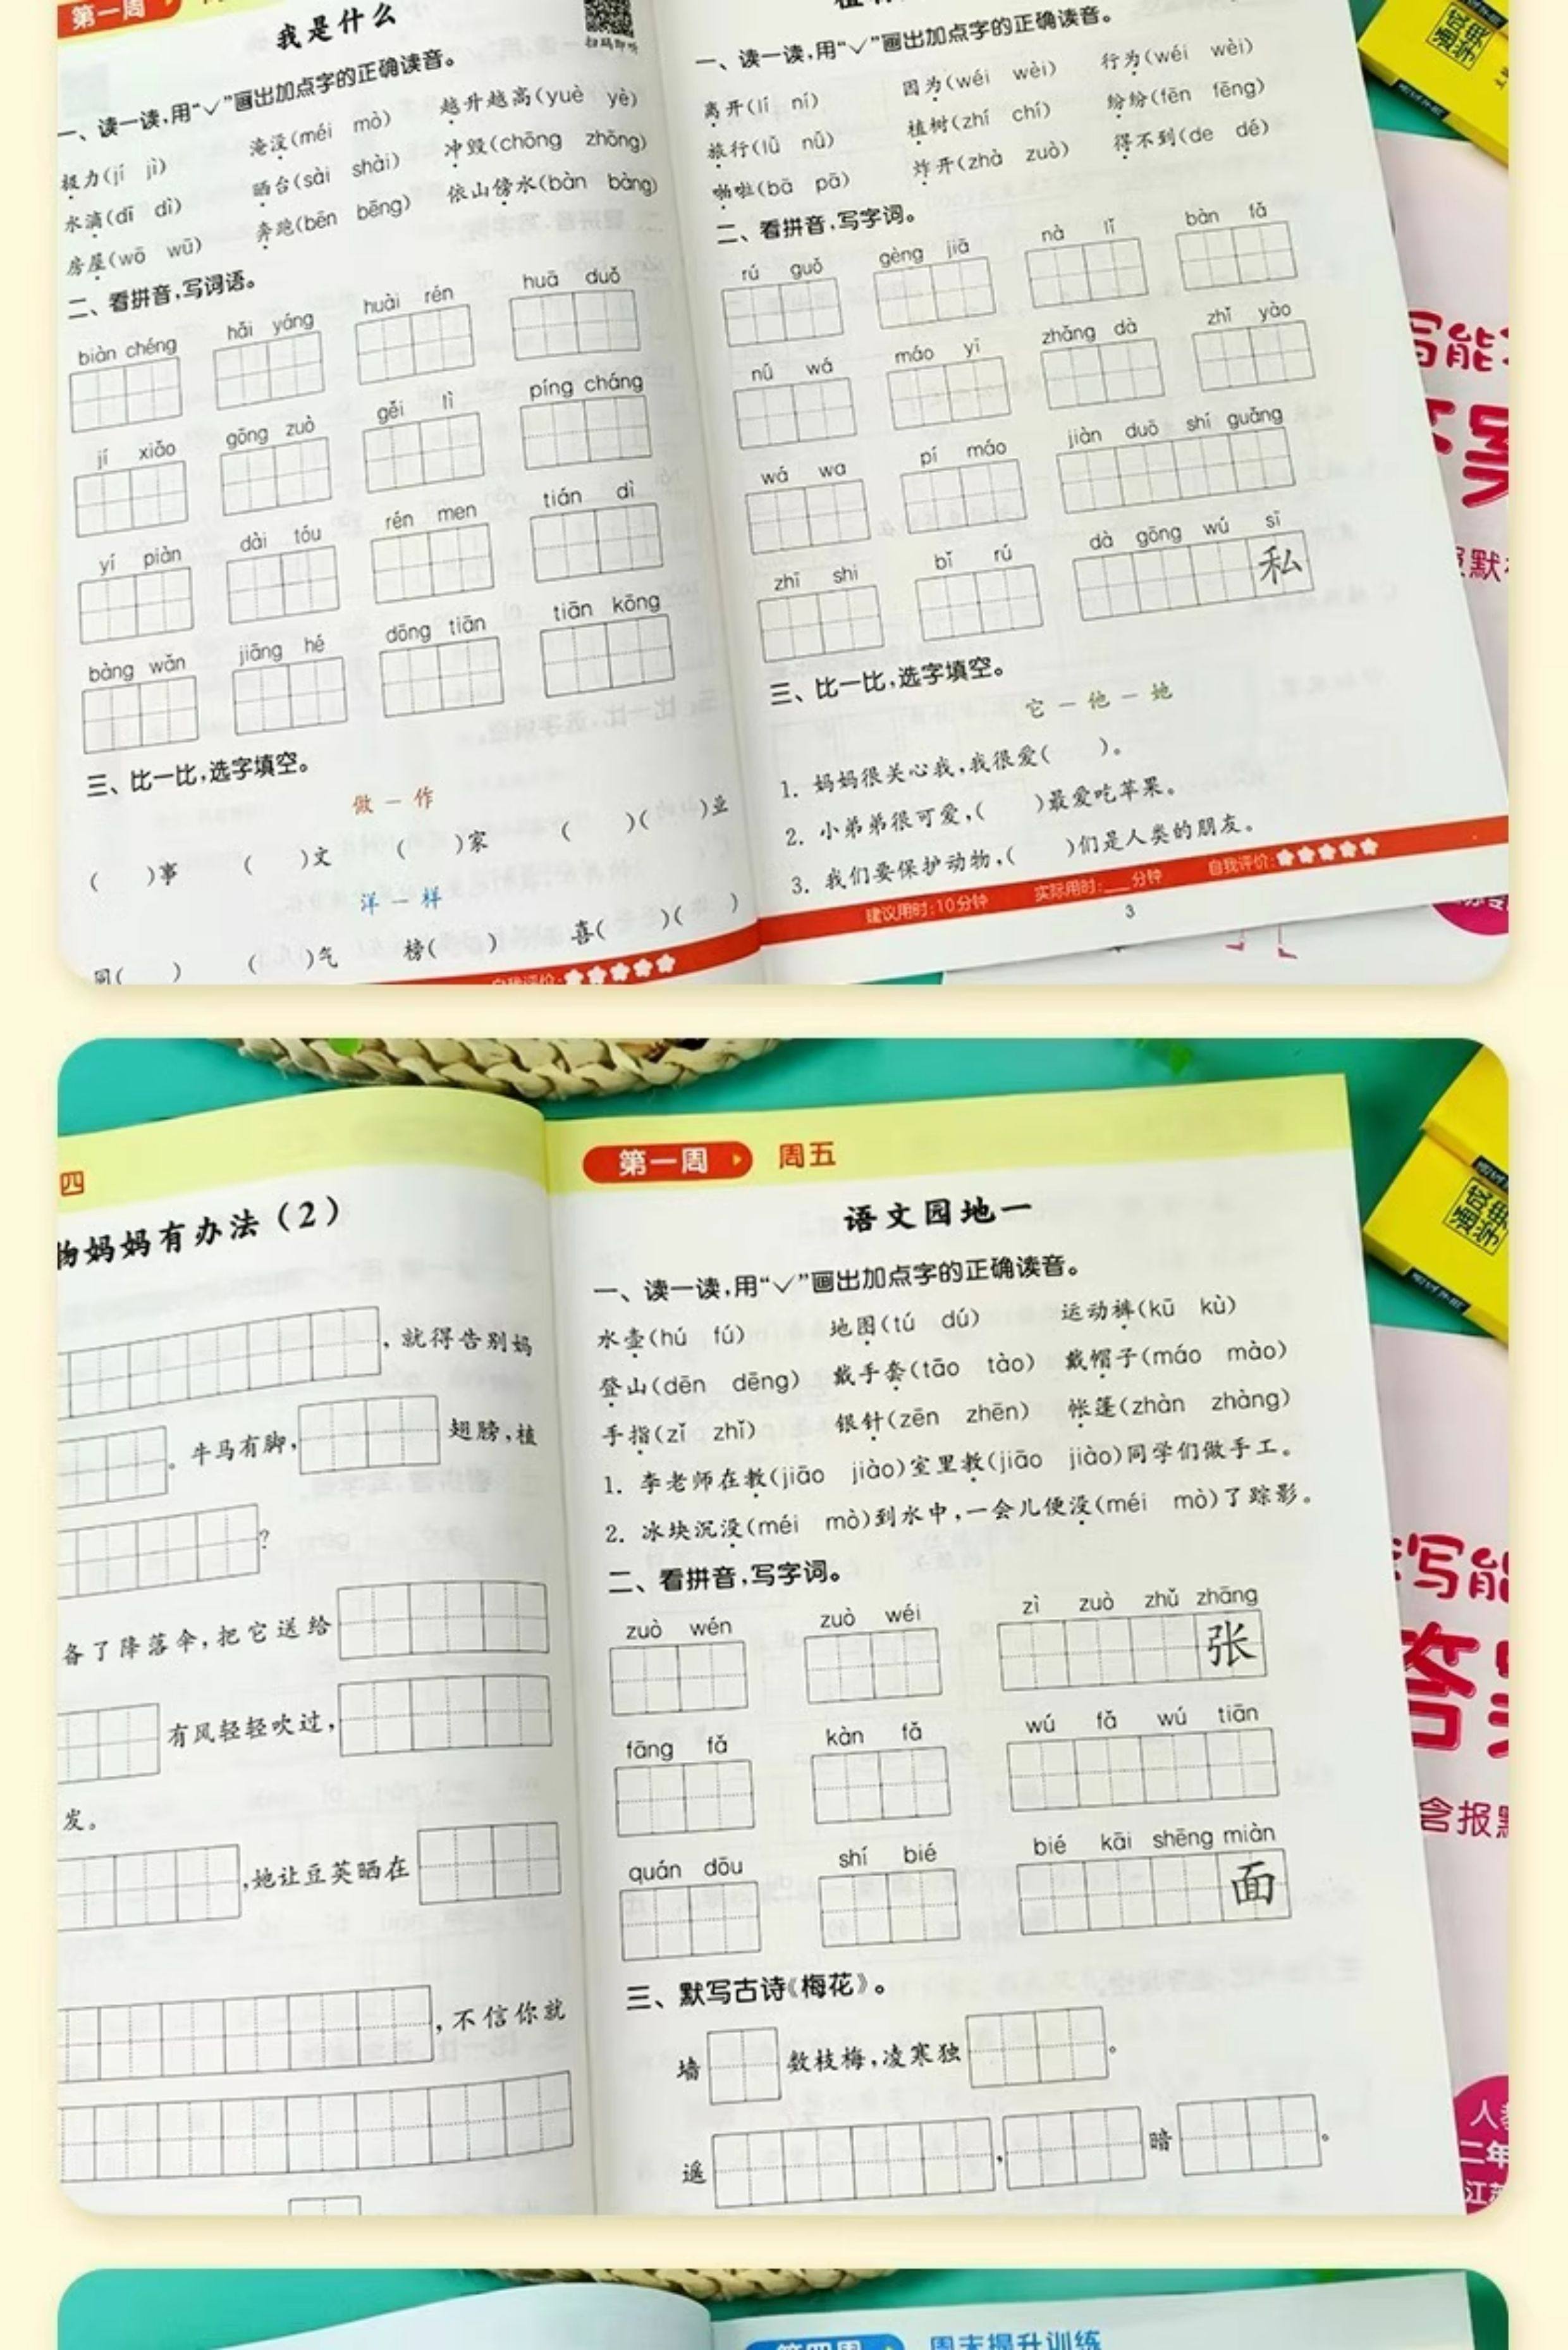 第一周
我是什么
扫码即听
一、读一读,用“✓”画出加点字的正确读音。
极力(jí jì) 淹没(méi mò) 越升越高(yuè yè)
水滴(dī dì) 晒台(sài shài) 冲毁(chōng zhōng)
房屋(wō wū) 奔跑(bēn bēng) 依山傍水(bàn bàng)
二、看拼音,写词语。
biàn chéng hǎi yáng huài rén huā duǒ
jí xiǎo gōng zuò gěi lì píng cháng
yí piàn dài tóu rén men tián dì
bàng wǎn jiāng hé dōng tiān tiān kōng
三、比一比,选字填空。
做 — 作
( )事 ( )文 ( )家 ( )( )业
洋 — 样
同( ) ( )气 榜( ) 喜( )( )
自我评价:
一、读一读,用“✓”画出加点字的正确读音。
离开(lí ní) 因为(wéi wèi) 行为(wéi wèi)
旅行(lǚ nǚ) 植树(zhí chí) 纷纷(fēn fēng)
啪啦(bā pā) 炸开(zhà zuò) 得不到(de dé)
二、看拼音,写字词。
rú guǒ gèng jiā nà lǐ bàn fǎ
nǚ wá máo yī zhǎng dà zhǐ yào
wá wa pí máo jiàn duō shí guǎng
zhī shi bǐ rú dà gōng wú sī
私
三、比一比,选字填空。
它 — 他 — 她
1. 妈妈很关心我,我很爱( )。
2. 小弟弟很可爱,( )最爱吃苹果。
3. 我们要保护动物,( )们是人类的朋友。
建议用时:10分钟 实际用时:___分钟 自我评价:
3
写能
默
四
物妈妈有办法(2)
,就得告别妈
。牛马有脚, 翅膀,植
?
备了降落伞,把它送给
有风轻轻吹过,
发。
,她让豆荚晒在
,不信你就
第一周 周五
语文园地一
一、读一读,用“✓”画出加点字的正确读音。
水壶(hú fú) 地图(tú dú) 运动裤(kū kù)
登山(dēn dēng) 戴手套(tāo tào) 戴帽子(máo mào)
手指(zǐ zhǐ) 银针(zēn zhēn) 帐篷(zhàn zhàng)
1. 李老师在教(jiāo jiào)室里教(jiāo jiào)同学们做手工。
2. 冰块沉没(méi mò)到水中,一会儿便没(méi mò)了踪影。
二、看拼音,写字词。
zuò wén zuò wéi zì zuò zhǔ zhāng
张
fāng fǎ kàn fǎ wú fǎ wú tiān
quán dōu shí bié bié kāi shēng miàn
面
三、默写古诗《梅花》。
墙 数枝梅,凌寒独 。
遥 , 暗 。
通成学典
写能
答
含报默
人教
二年
江苏
第四周 周末提升训练